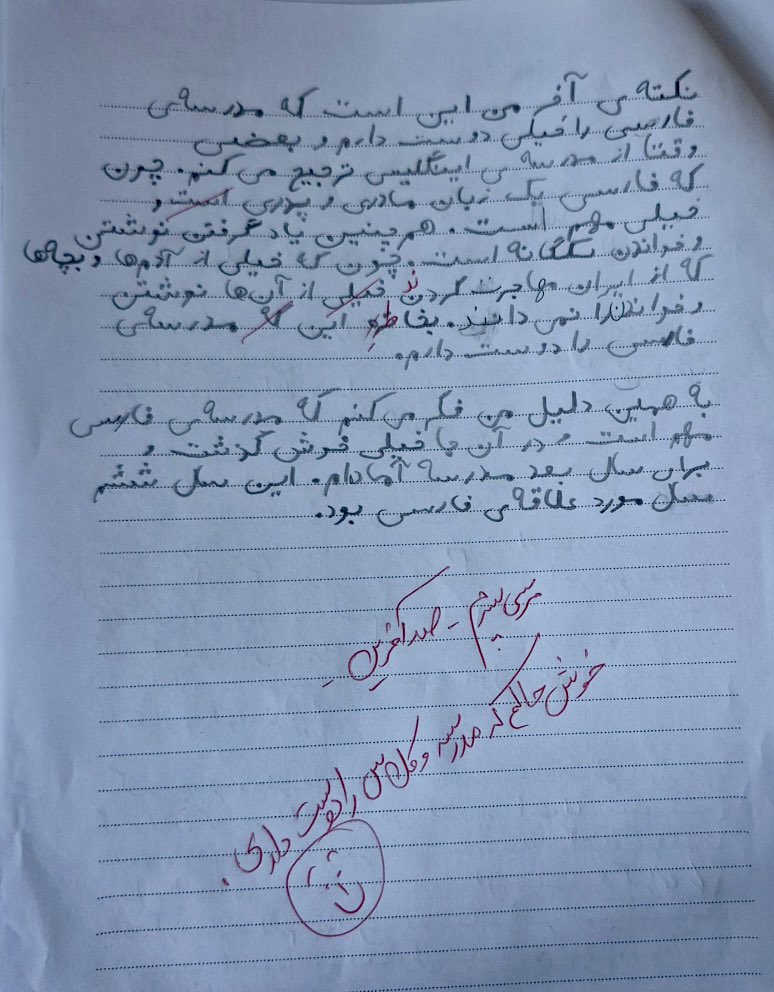 نکته ی آخر من این است که مدرسه ی
فارسی را خیلی دوست دارم و بعضی
وقتا از مدرسه ی اینگلیسی ترجیح می کنم. چون
که فارسی یک زبان مادری و پدری است و
خیلی مهم است. هم چنین یاد گرفتن نوشتن
و خواندن است. چون که خیلی از آدم ها و بچه ها
که از ایران مهاجرت کردن ند خیلی از آن ها نوشتن
و خواندن را نمی دانند. بخاطر این که مدرسه ی
فارسی را دوست دارم.
به همین دلیل من فکر می کنم که مدرسه ی فارسی
مهم است و در آن جا خیلی خوش گذشت و
برای سال بعد مدرسه آمادام. این سال ششم
سال مورد علاقه ی فارسی بود.
مرسی پسرم - صد آفرین -
خوش حالم که مدرسه و کلاس را دوست داری.